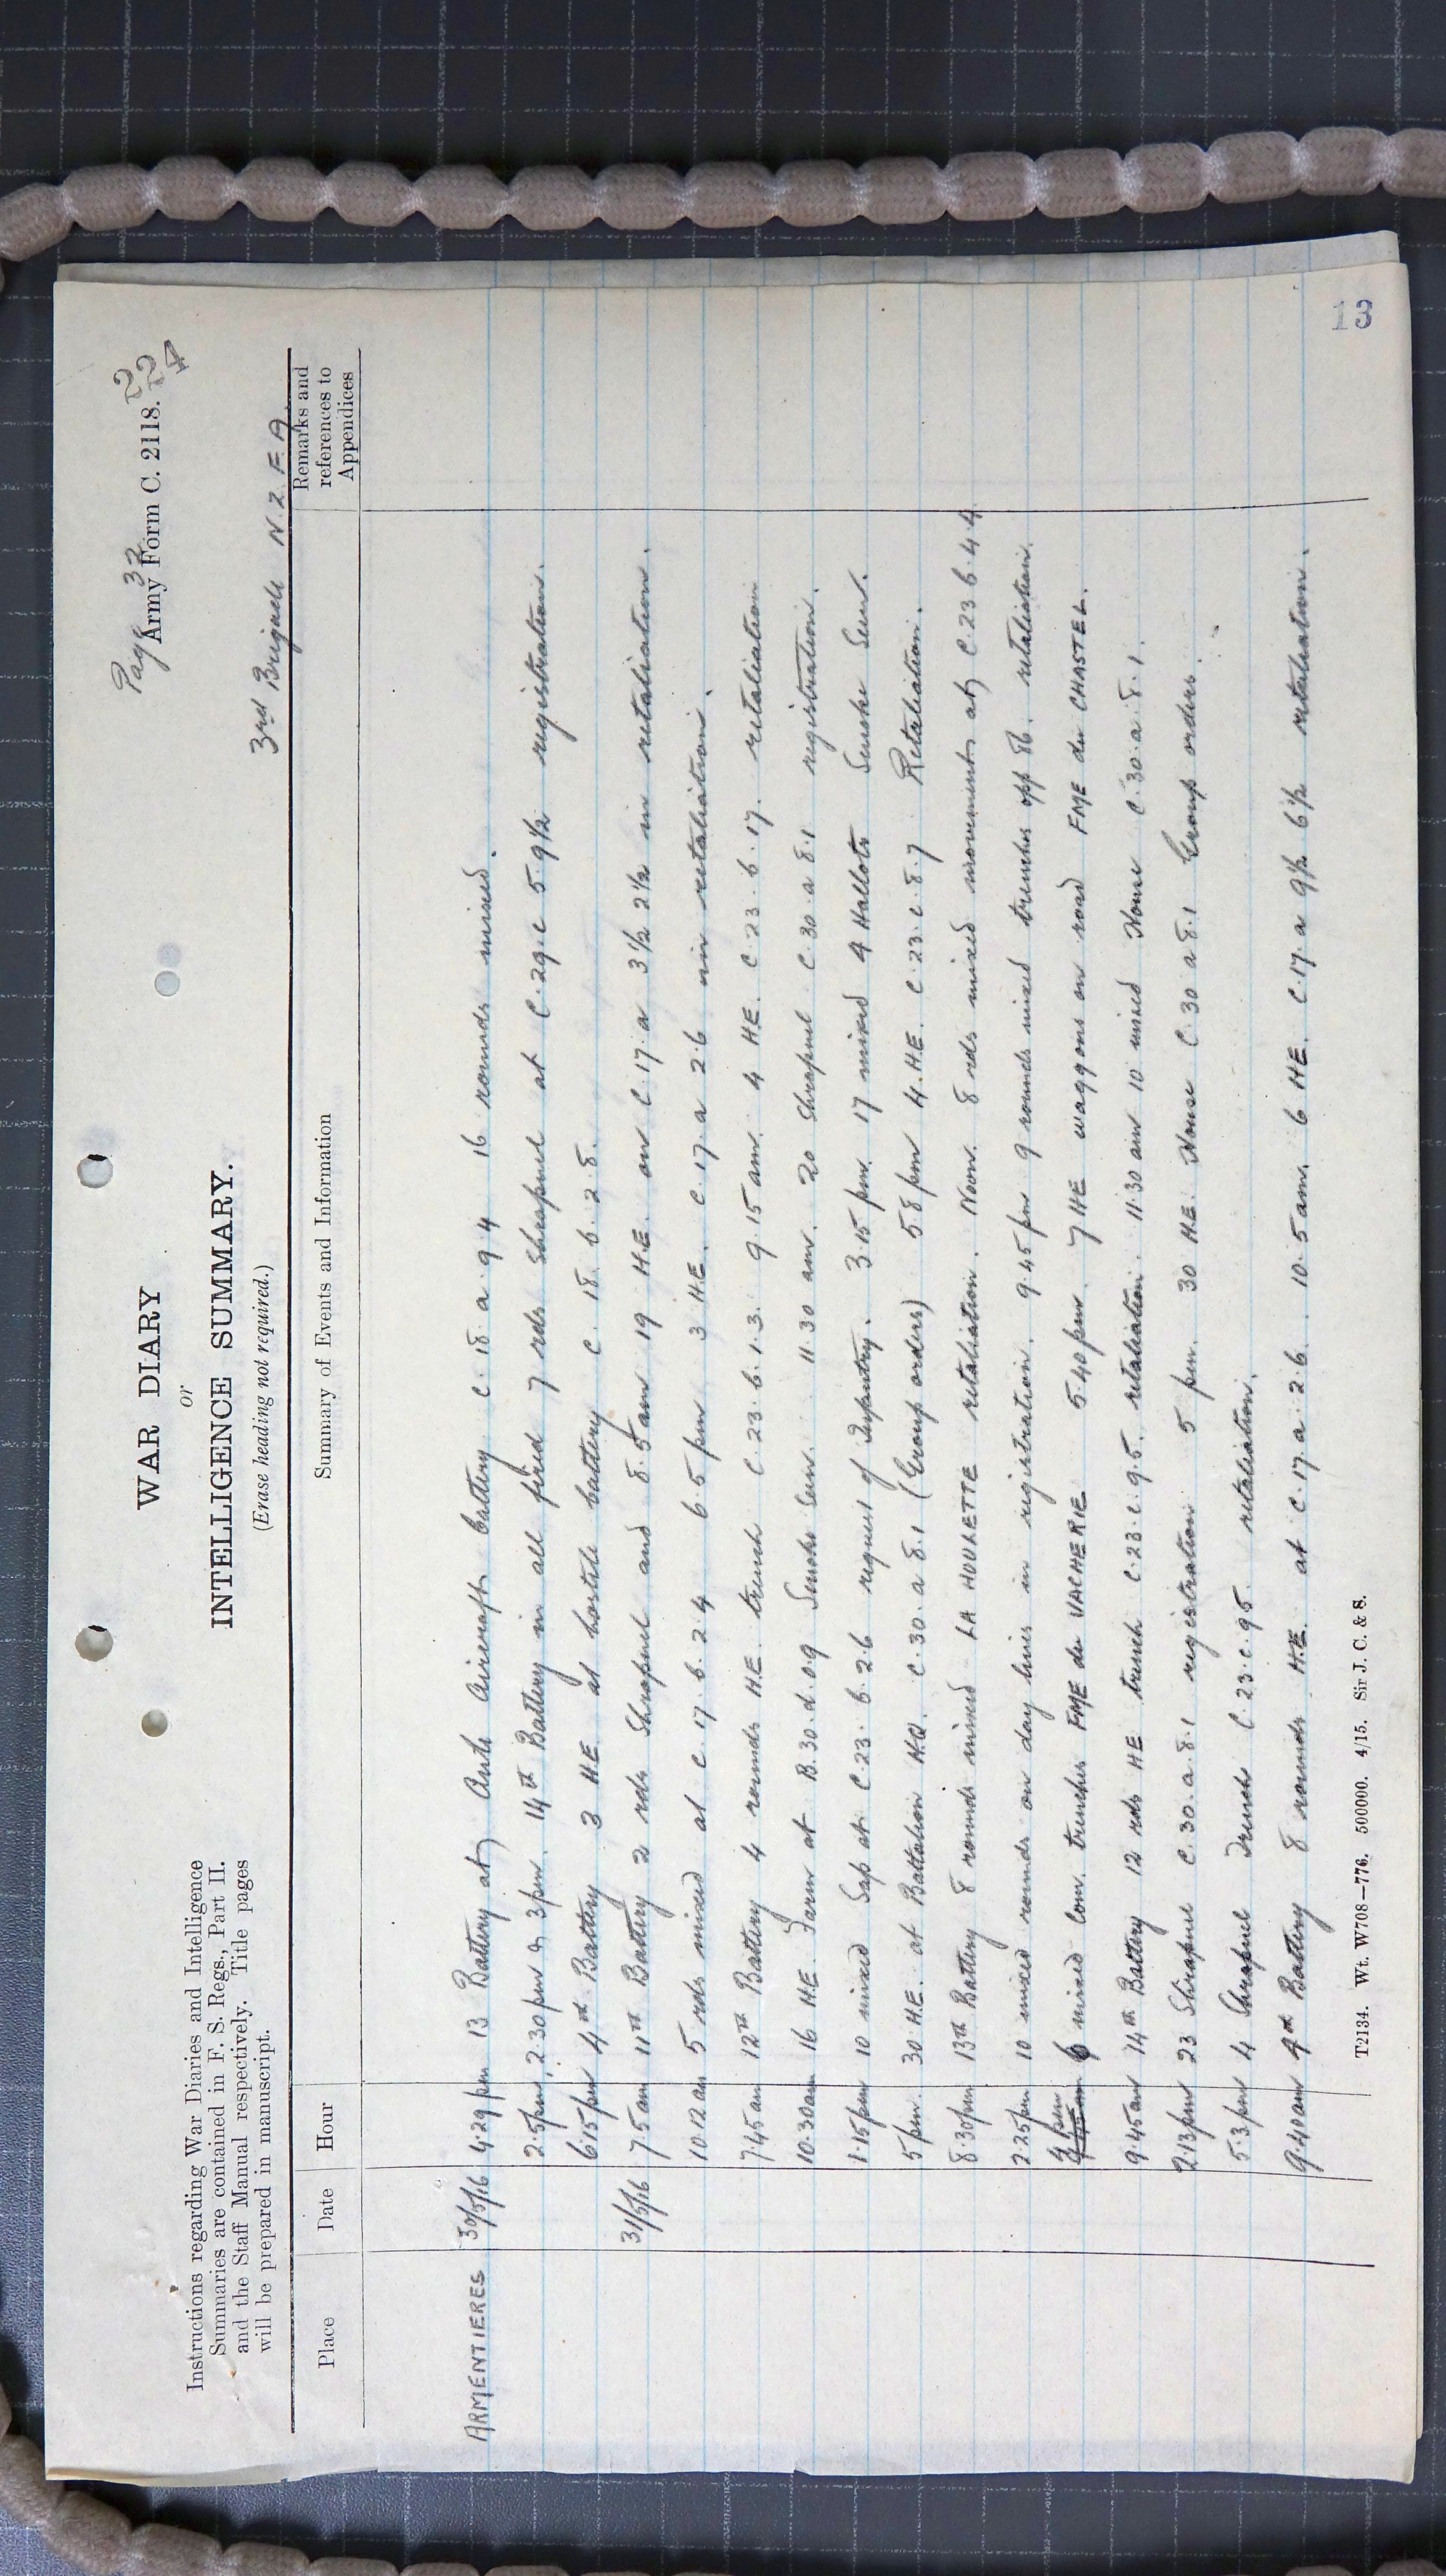 Page 32
Army Form C. 2118.
224
WAR DIARY
or
INTELLIGENCE SUMMARY.
(Erase heading not required.)
Instructions regarding War Diaries and Intelligence
Summaries are contained in F. S. Regs., Part II.
and the Staff Manual respectively. Title pages
will be prepared in manuscript.
3rd Brigade N.Z.F.A.
Place Date Hour Summary of Events and Information Remarks and references to Appendices
ARMENTIERES 30/5/16 4.29 pm 13 Battery at Anti Aircraft battery C.18.a.9.4 16 rounds mixed.
2.5 pm, 2.30 pm & 3 pm. 14th Battery in all fired 7 rds Shrapnel at C.29.c 5.9½ registration.
6.15 pm 4th Battery 3 HE at hostile battery C.18.b.2.8.
31/5/16 7.5 am 11th Battery 2 rds Shrapnel and 8.5 am 19 H.E. on C.17.a 3½ 2½ in retaliation.
10.12 am 5 rds mixed at C.17.b.2.4 6.5 pm 3 H.E. C.17.a 2.6 in retaliation.
7.45 am 12th Battery 4 rounds H.E. trench C.23.b.1.3. 9.15 am. 4 H.E. C.23.b.17. retaliation
10.30 am 16 H.E. Farm at B.30.d.0.9 Smoke seen. 11.30 am. 20 Shrapnel C.30.a 8.1 registration.
1.15 pm 10 mixed Sap at C.23.b.2.6 request of Infantry. 3.15 pm. 17 mixed 4 Hallots Smoke Seen.
5 pm. 30 H.E. at Battalion H.Q. C.30.a 8.1 (Group orders) 5 8 pm 4 H.E. C.23.c.8.7 Retaliation.
8.30 pm 13th Battery 8 rounds mixed LA HOULETTE retaliation. Noon. 8 rds mixed movements at C.23.b.4.4
2.25 pm 10 mixed rounds on day lines in registration. 9.45 pm 9 rounds mixed trenches opp 86. retaliation.
4 pm 6 mixed Com. trenches FME du VACHERIE 5.40 pm. 7 HE waggons on road FME du CHASTEL.
9.45 am 14th Battery 12 rds HE trench C.23.c.9.5. retaliation. 11.30 am 10 mixed House C.30.a.8.1.
2.13 pm 23 Shrapnel C.30.a.8.1 registration 5 pm. 30 H.E. House C.30 a 8.1 Group orders.
5.3 pm 4 Shrapnel Trench C.23.c.95. retaliation.
9.40 am 4th Battery 8 rounds H.E. at C.17.a.2.6. 10.5 am. 6 HE. C.17.a 9½ 6½ retaliation.
T2134. Wt. W708—776. 500000. 4/15. Sir J. C. & S.
13